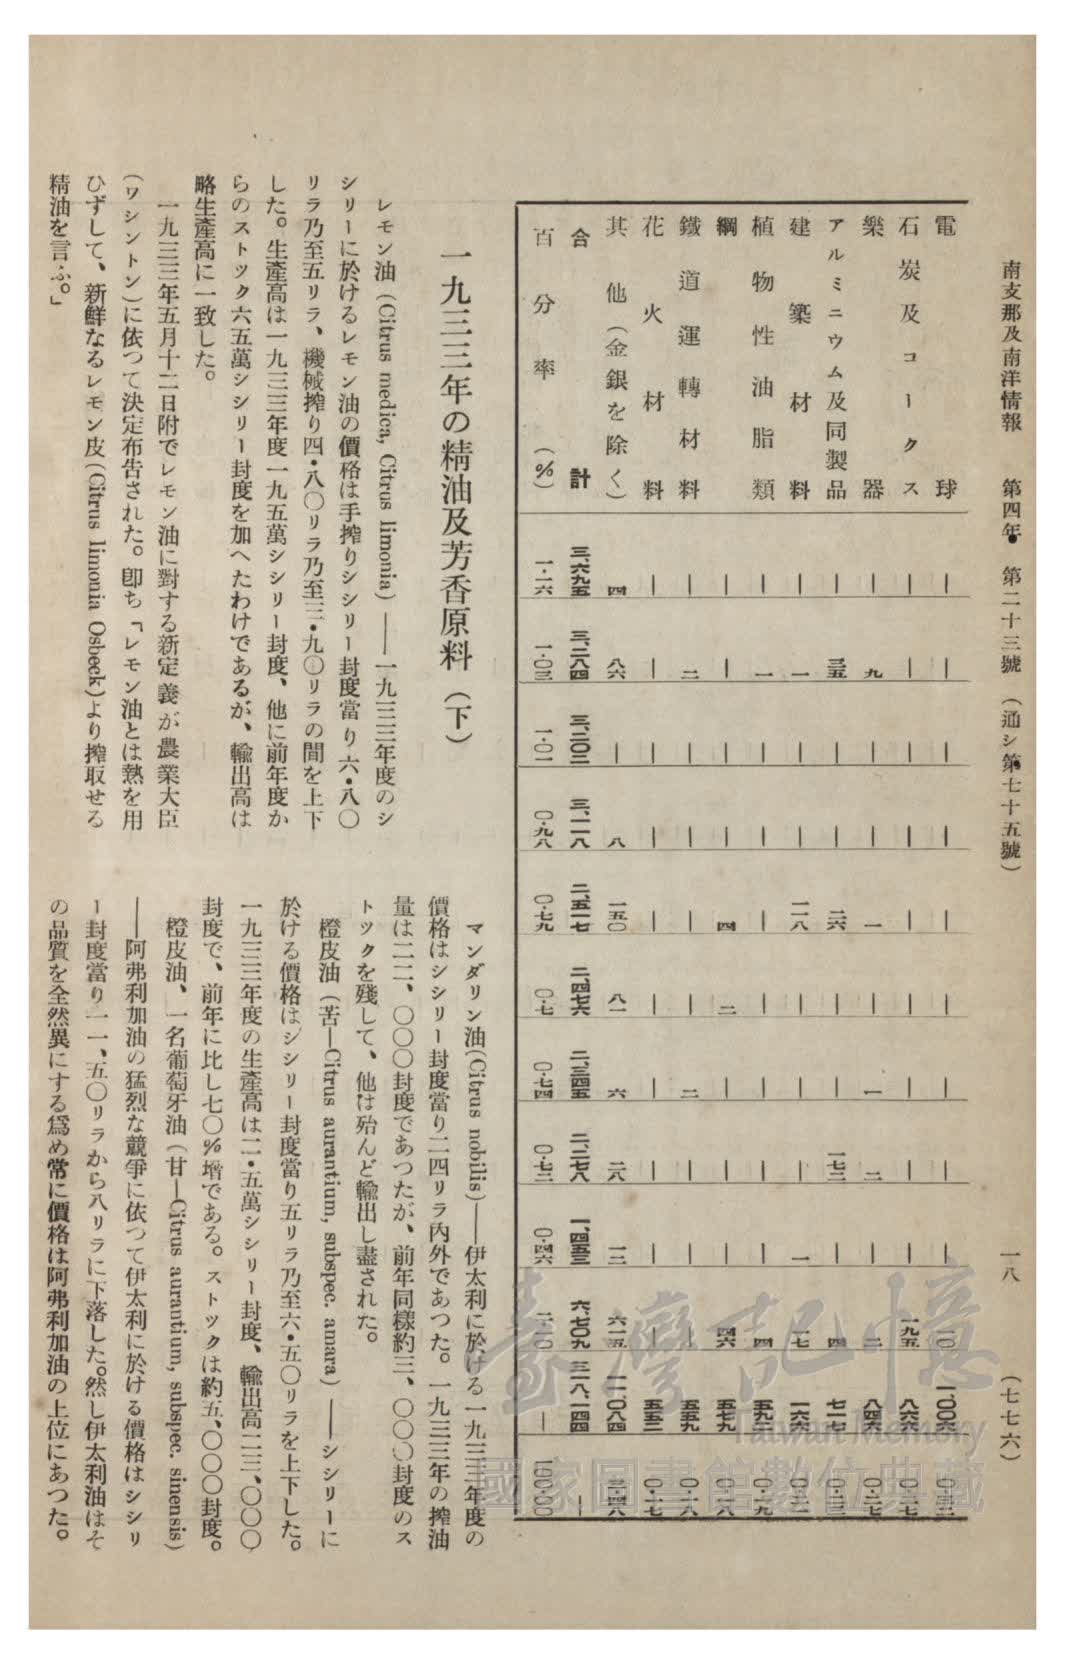 南支那及南洋情報　第四年　第二十三號　(通シ第七十五號)　一八　(七七六)
電球　｜　｜　｜　｜　｜　｜　｜　｜　｜　一〇　一、〇〇六
石炭及コークス　｜　｜　｜　｜　｜　｜　｜　｜　｜　一九五　八六六
樂器　｜　九　｜　｜　一　｜　一　二　｜　二　八四六
アルミニウム及同製品　｜　三五　｜　｜　二六　｜　｜　一七三　｜　四　七一七
建築材料　｜　一　｜　｜　一一八　｜　｜　｜　一　一七　一六六
植物性油脂類　｜　一　｜　｜　｜　｜　｜　｜　｜　四
綱　｜　｜　｜　｜　四　二　｜　｜　｜　四六　五七九
鐵道運轉材料　｜　二　｜　｜　｜　｜　二　｜　｜　｜　五五九
花火材料　｜　｜　｜　｜　｜　｜　｜　｜　｜　｜　五五二
其他(金銀を除く)　四　八六　｜　八　一五〇　八一　六　二八　一二　六一五　一一、〇八四
合計　三、六九五　三、二八四　三、二〇二　三、一一八　二、五一七　二、四七六　二、三四五　二、二七八　一、四五三　六、七〇九　三一八、一四四　｜
百分率(%)　一・一六　一・〇三　一・〇一　〇・九八　〇・七九　〇・七　〇・七四　〇・七二　〇・四六　二・一〇　｜　一〇〇・〇〇
一九三三年の精油及芳香原料(下)
レモン油(Citrus medica, Citrus limonia)——一九三三年度のシ
シリーに於けるレモン油の價格は手搾りシシリー封度當り六・八〇
リラ乃至五リラ、機械搾り四・八〇リラ乃至三・九〇リラの間を上下
した。生產高は一九三三年度一九五萬シシリー封度、他に前年度か
らのストック六五萬シシリー封度を加へたわけであるが、輸出高は
略生產高に一致した。
一九三三年五月十二日附でレモン油に對する新定義が農業大臣
(ワシントン)に依つて決定布告された。卽ち「レモン油とは熱を用
ひずして、新鮮なるレモン皮(Citrus limonia Osbeck)より搾取せる
精油を言ふ。」
マンダリン油(Citrus nobilis)——伊太利に於ける一九三三年度の
價格はシシリー封度當り二四リラ內外であつた。一九三三年の搾油
量は二二、〇〇〇封度であつたが、前年同樣約三、〇〇〇封度のス
トックを殘して、他は殆んど輸出し盡された。
橙皮油(苦—Citrus aurantium, subspec. amara)——シシリーに
於ける價格はシシリー封度當り五リラ乃至六・五〇リラを上下した。
一九三三年度の生產高は二・五萬シシリー封度、輸出高二三、〇〇〇
封度で、前年に比し七〇%增である。ストックは約五、〇〇〇封度。
橙皮油、一名葡萄牙油(甘—Citrus aurantium, subspec. sinensis)
——阿弗利加油の猛烈な競爭に依つて伊太利に於ける價格はシシリ
ー封度當り一一、五〇リラから八リラに下落した。然し伊太利油はそ
の品質を全然異にする爲め常に價格は阿弗利加油の上位にあつた。
臺灣記憶
Taiwan Memory
國家圖書館數位典藏